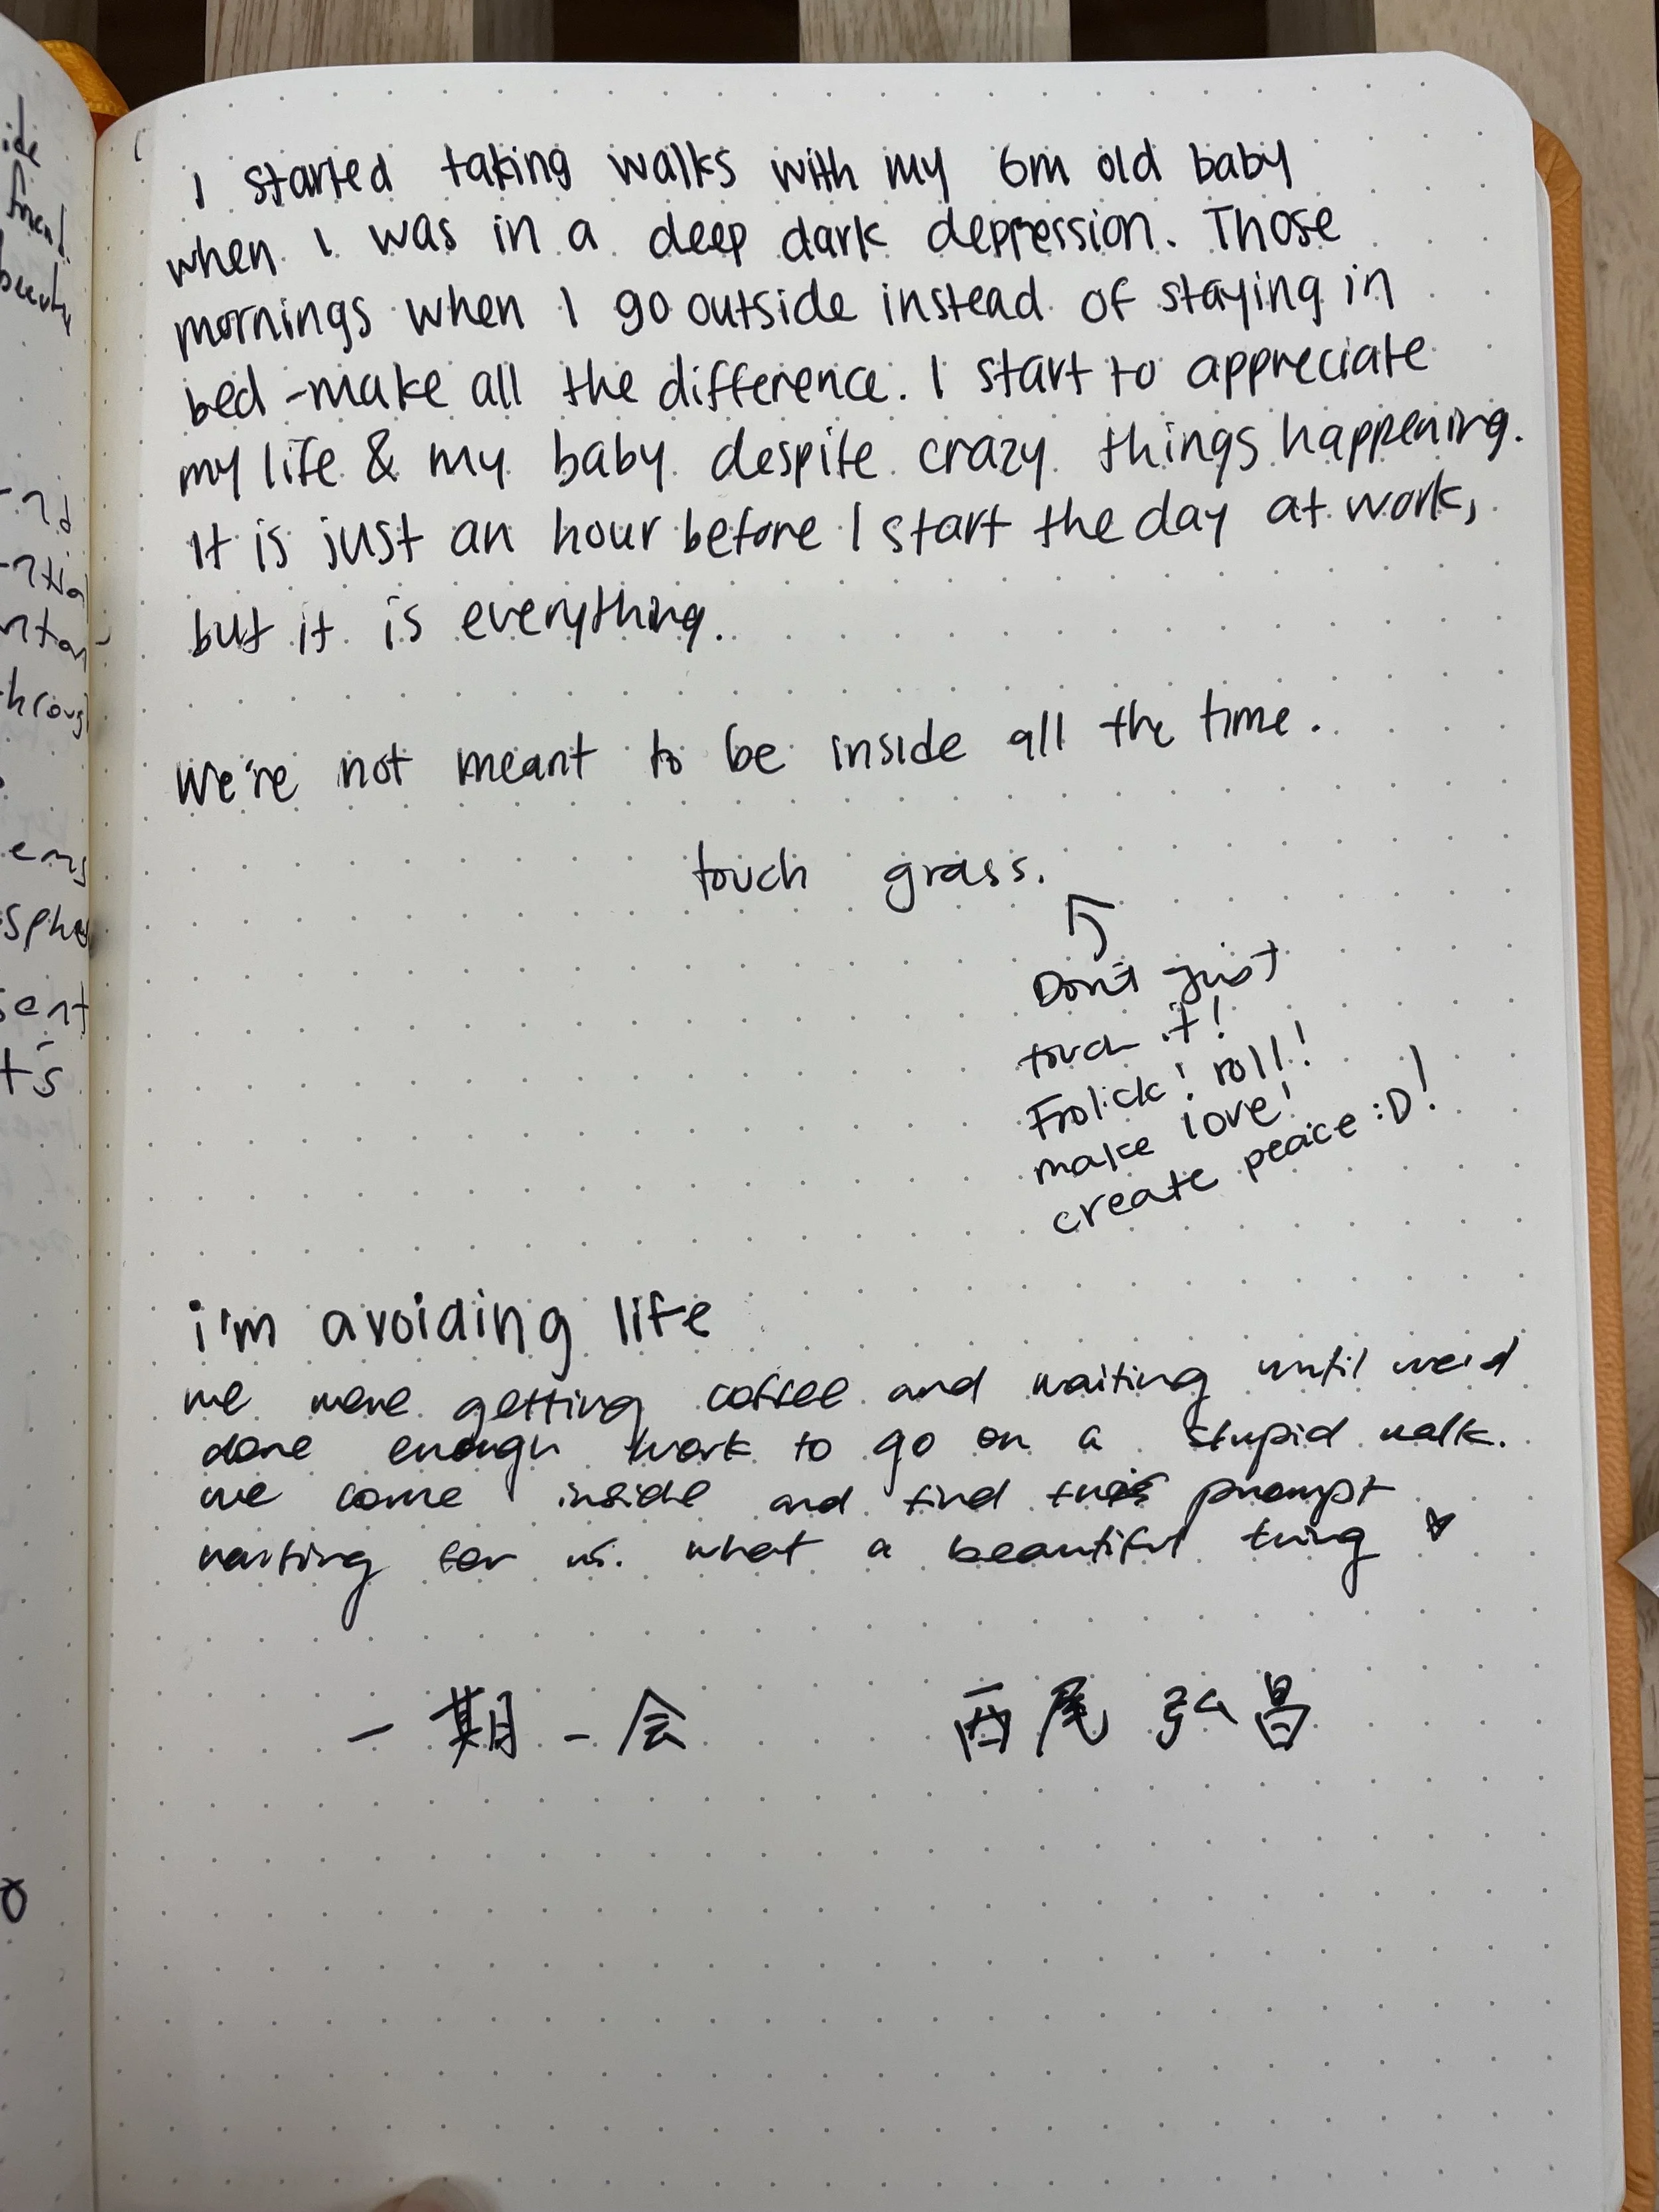 ide
friend.
I started taking walks with my 6m old baby
when I was in a deep dark depression. Those
mornings when I go outside instead of staying in
bed - make all the difference. I start to appreciate
my life & my baby despite crazy things happening.
It is just an hour before I start the day at work,
but it is everything.
We're not meant to be inside all the time.
touch grass.
Don't just
touch it!
Frolick! roll!
make love!
create peace :D!
i'm avoiding life
we were getting coffee and waiting until we'd
done enough work to go on a stupid walk.
we come inside and find this prompt
waiting for us. what a beautiful thing ♥
一期一会 西尾 弘昌